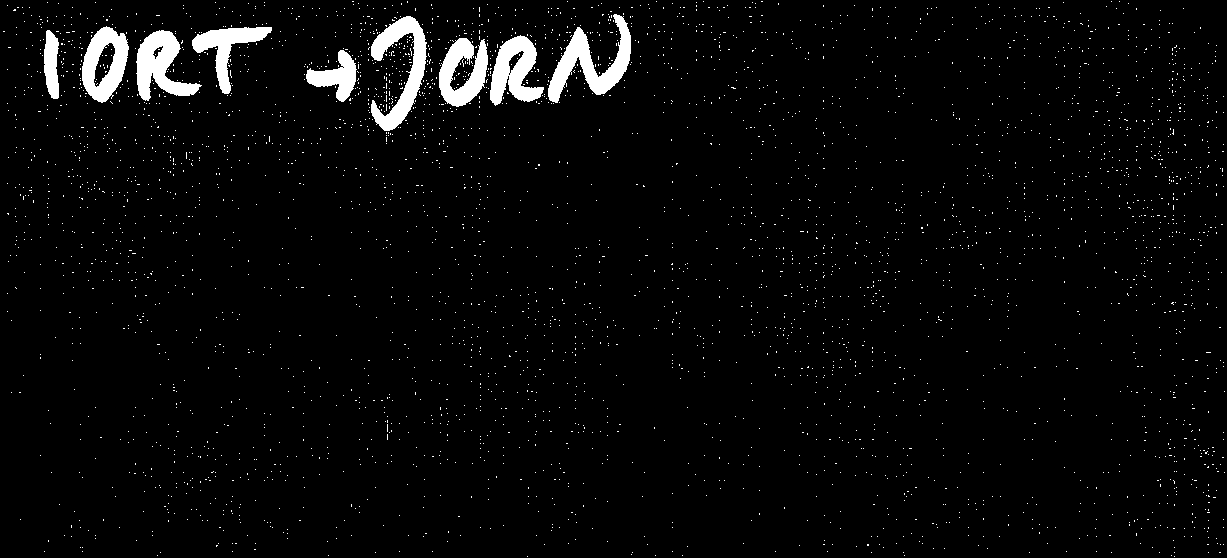 IORT → JORN